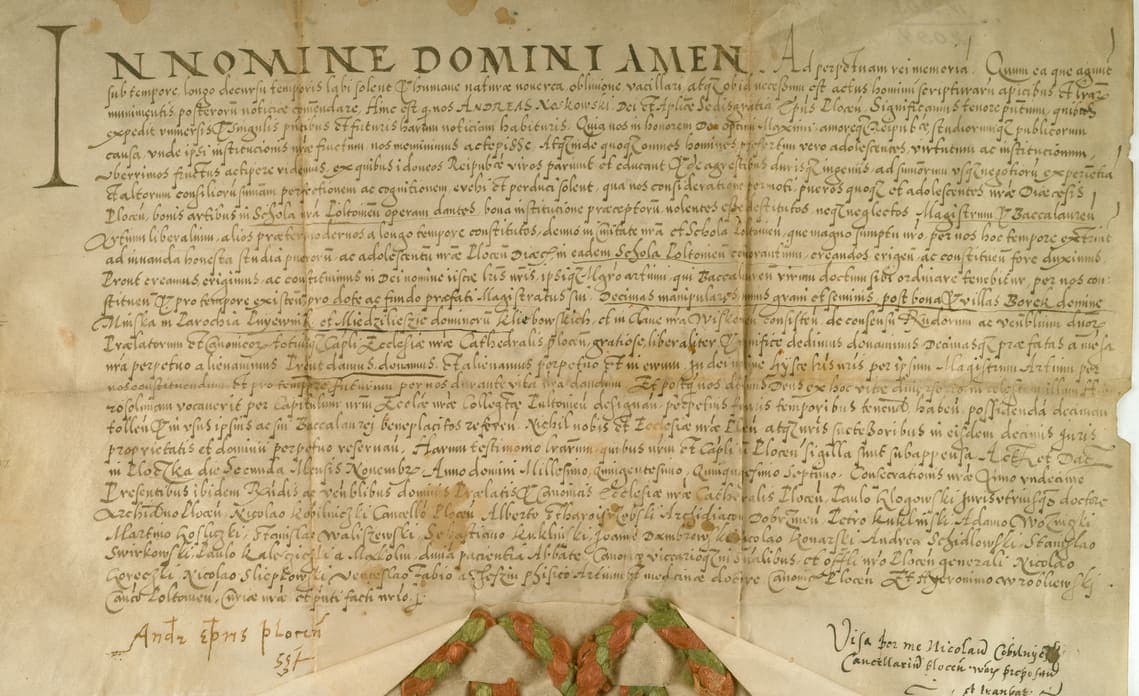 IN NOMINE DOMINI AMEN Ad perpetuam rei memoria. Quum ea que agunt
sub tempore, longo decursu temporis labi solent et humane naturæ noverca oblivione vacillari, atq ob id necessum est actus hominu scripturaru apicibus et
munimentis posteroru noticiæ comendare, Hinc est q nos ANDREAS Noskowski Dei et Aplice Sedis gratia Epus Plocen, Significamus tenore pntium, quibus
expedit vniversis et singulis pntibus et futuris harum noticiam habituris. Quia nos in honorem Dei optimi Maximi, amoreq Reipubcæ studiorumq publicorum
causa, vnde ipsi institucionis nræ fructum, nos meminimus accepisse. Atq inde quoq omnes homines, presertim vero adolescentes, virtutum ac institucionum,
vberrimos fructus accipere videmus, ex quibus idoneos Reipubcæ viros pariunt et educant et de agrestibus durisq ingeniis, ad sumorum vsq negotioru experietia
et altorum consilioru sumam perfectionem ac cognitionem, evehi et perduci solent, qua nos consideratione permoti, pueros quosq et adolescentes nræ Diæcesis
Plocen, bonis artibus in Schola nra Poltomen operam dantes, bona institucione præceptoru nolentes esse destitutos, neq neglectos Magistrum et Baccalaureu
Artium liberalium, alios præter modernos a longo tempore constitutos, denuo in civitate nra et Schola Poltomen, que magno sumptu nro, per nos hoc tempore extructa
ad iuvanda honesta studia pueroru, ac adolescentu nræ Plocen Diæcesi in eadem Schola Poltomen creandos erigen, ac constituen fore duximus.
Prout creamus, erigimus, ac constituimus in Dei nomine iisce lris nris, ipsiq Mgro artium, qui Baccalaureu virum doctum sibi ordinare tenebitur, per nos con-
stituen et pro tempore existen, pro dote ac fundo præfati Magistratus sui. Decimas manipulares, grani et seminis, post bona et villas Borek
Minska in Parochia et Miedzilieszie dominoru Kliebowskich, et in Clave nra consisten, de consensu Rndorum ac venbilium dnor
Prælatorum et Canonicor totiusq Capli Ecclesiæ nræ Cathedralis Plocen, gratiose, liberaliter et munifice dedimus donavimus Decimasq præfatas a mesa
nra perpetuo alienavimus Prout damus, donamus, et alienamus perpetuo et in evum, in dei nomine hysce lris nris per ipsum Magistrum Artium per
nos constituendum et pro tempore futurum per nos durante vita nra dandum. Et postq nos Deus ex hoc vite
rosolimam vocaverit per Capitulum nrum Ecclæ nræ Collegtæ Pultovien designan, perpetuis futuris temporibus tenend haben, possidenda decimam
tollen et in vsus ipsius ac sui Baccalaurei beneplacitos referen. Nichil nobis et Ecclesiæ nræ Plocen atq nris successoribus in eisdem decimis Iuris
proprietatis et dominii perpetuo reservan, Harum testimonio lrarum, quibus nrm et Capli nri Plocen sigilla sunt subappensa. Act et Dat
in Ploczka die Secunda Mensis Novembr Anno domini Millesimo, Quingentesimo, Quinquagesimo Septimo. Consecrationis nræ Anno vndecimo
Presentibus ibidem Rndis ac venblibus dominis Prælatis et Canonicis Ecclesiæ nræ Cathedralis Plocen, Paulo Glogowski Iuris vtriusq doctore
Archidno Plocen Nicolao Kobilniczki Cancello Plocen Alberto Archidiacon Dobrzinen, Petro Kuklinski, Adamo Wolinzki
Martino Stanislao Waliszewski, Sebastiano Kuklinski, Joanne Dambrowski Nicolao Konarski Andrea Schidlowski, Stanislao
Swirkowski, Paulo a Makolin, divina pacientia Abbate Canonæ et offli nro Plocen generali Nicolao
Gorecski Nicolao Venceslao Fabio a phisico Artium et medicinæ doctore Canonicis Plocen Et Hyeronimo wrobliewski
Canco Poltovien, Curiæ nræ et pnti facti nrio.
Andr Epus Plocen
sst
Visa per me Nicolaum Cobilnyczki
Cancellarium plocen